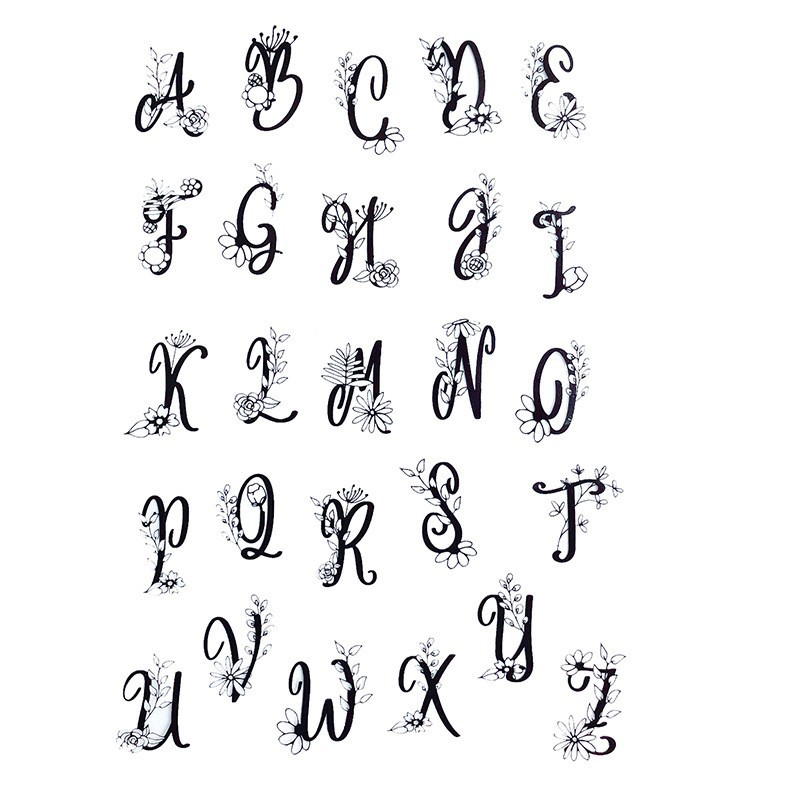 A B C D E
F G H I J
K L M N O
P Q R S T
U V W X Y Z